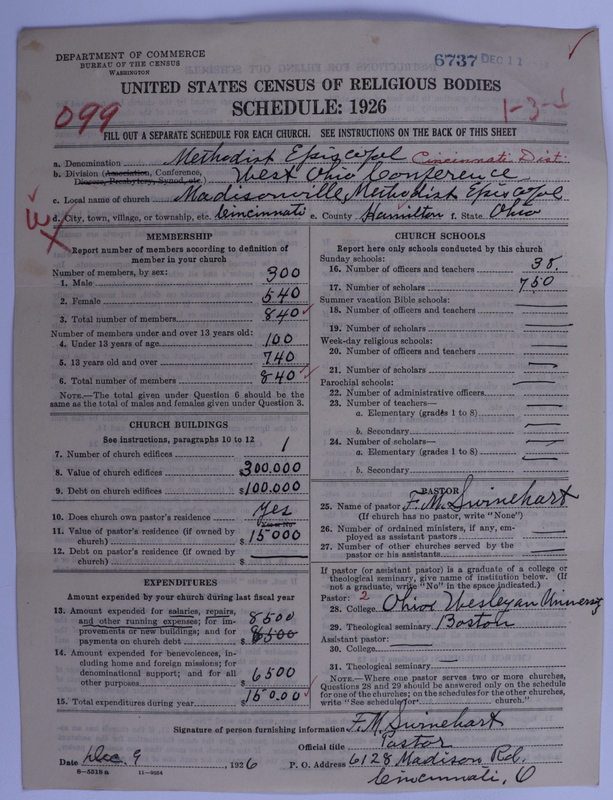 DEPARTMENT OF COMMERCE
BUREAU OF THE CENSUS
WASHINGTON
6737 DEC 11
UNITED STATES CENSUS OF RELIGIOUS BODIES
SCHEDULE: 1926
099
1-3-1
FILL OUT A SEPARATE SCHEDULE FOR EACH CHURCH. SEE INSTRUCTIONS ON THE BACK OF THIS SHEET
a. Denomination Methodist Episcopal Cincinnati Dist.
b. Division (Association, Conference, Diocese, Presbytery, Synod, etc.) West Ohio Conference
c. Local name of church Madisonville Methodist Episcopal
d. City, town, village, or township, etc. Cincinnati e. County Hamilton f. State Ohio
MEMBERSHIP
Report number of members according to definition of
member in your church
Number of members, by sex:
1. Male 300
2. Female 540
3. Total number of members 840
Number of members under and over 13 years old:
4. Under 13 years of age 100
5. 13 years old and over 740
6. Total number of members 840
NOTE.—The total given under Question 6 should be
same as the total of males and females given under Question 3.
CHURCH BUILDINGS
See instructions, paragraphs 10 to 12
7. Number of church edifices 1
8. Value of church edifices $300,000
9. Debt on church edifices $100,000
10. Does church own pastor's residence Yes
11. Value of pastor's residence (if owned by
church) $15000
12. Debt on pastor's residence (if owned by
church) $
EXPENDITURES
Amount expended by your church during last fiscal year
13. Amount expended for salaries, repairs,
and other running expenses; for im-
provements or new buildings; and for
payments on church debt 8500
$6500
14. Amount expended for benevolences, in-
cluding home and foreign missions; for
denominational support; and for all
other purposes $6500
15. Total expenditures during year $15000
CHURCH SCHOOLS
Report here only schools conducted by this church
Sunday schools:
16. Number of officers and teachers 38.
17. Number of scholars 750
Summer vacation Bible schools:
18. Number of officers and teachers
19. Number of scholars
Week-day religious schools:
20. Number of officers and teachers
21. Number of scholars
Parochial schools:
22. Number of administrative officers
23. Number of teachers—
a. Elementary (grades 1 to 8)
b. Secondary
24. Number of scholars—
a. Elementary (grades 1 to 8)
b. Secondary
PASTOR
25. Name of pastor F. M. Swinehart
(If church has no pastor, write "None")
26. Number of ordained ministers, if any, em-
ployed as assistant pastors
27. Number of other churches served by the
pastor or his assistants
If pastor (or assistant pastor) is a graduate of a college or
theological seminary, give name of institution below. (If
not a graduate, write "No" in the space indicated.)
Pastor: 2
28. College Ohio Wesleyan University
29. Theological seminary Boston
Assistant pastor:
30. College
31. Theological seminary
NOTE.—Where one pastor serves two or more churches,
Questions 28 and 29 should be answered only on the schedule
for one of the churches; on the schedules for the other churches,
write "See schedule for church."
Signature of person furnishing information F. M. Swinehart
Official title Pastor
Date Dec. 9, 1926 P. O. Address 6128 Madison Rd.
8-5518a 11-9264
Cincinnati, O